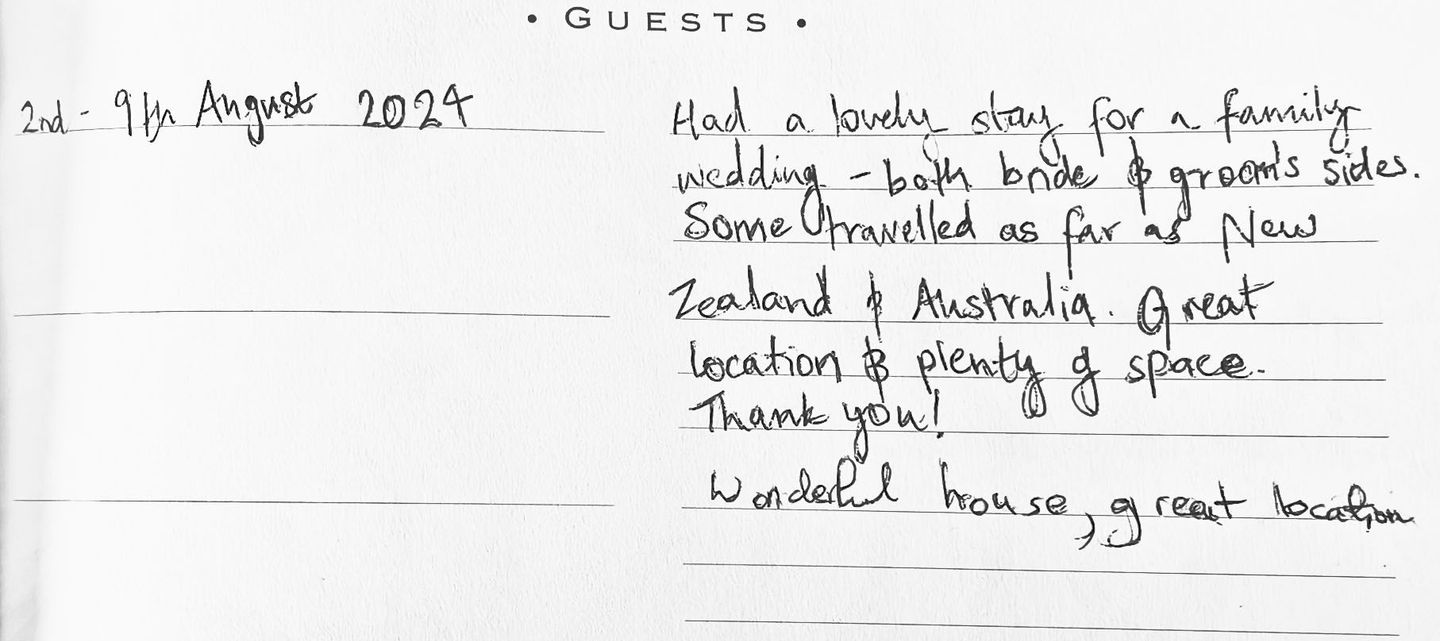 • GUESTS •
2nd - 9th August 2024
Had a lovely stay for a family
wedding - both bride & groom's sides.
Some travelled as far as New
Zealand & Australia. Great
location & plenty of space.
Thank you!
Wonderful house, great location